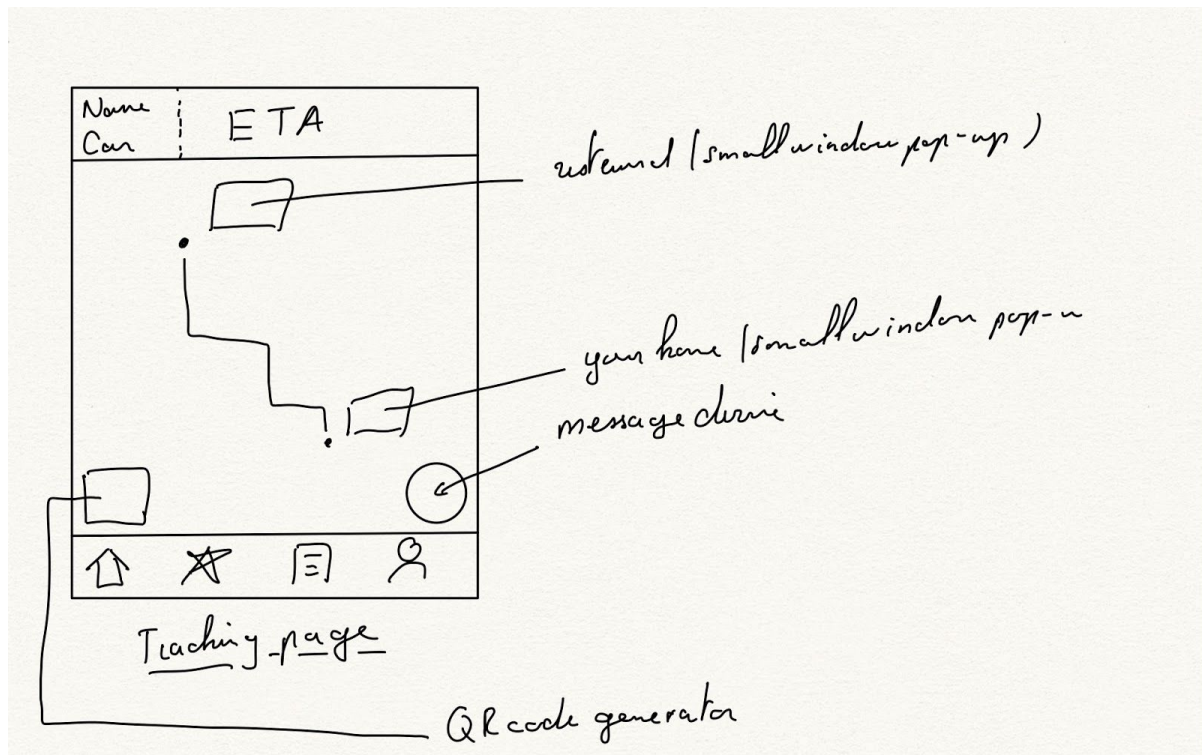 Name
Car
ETA
(small window pop-up)
your home (small window pop-u
message
Tracking page
QR code generator